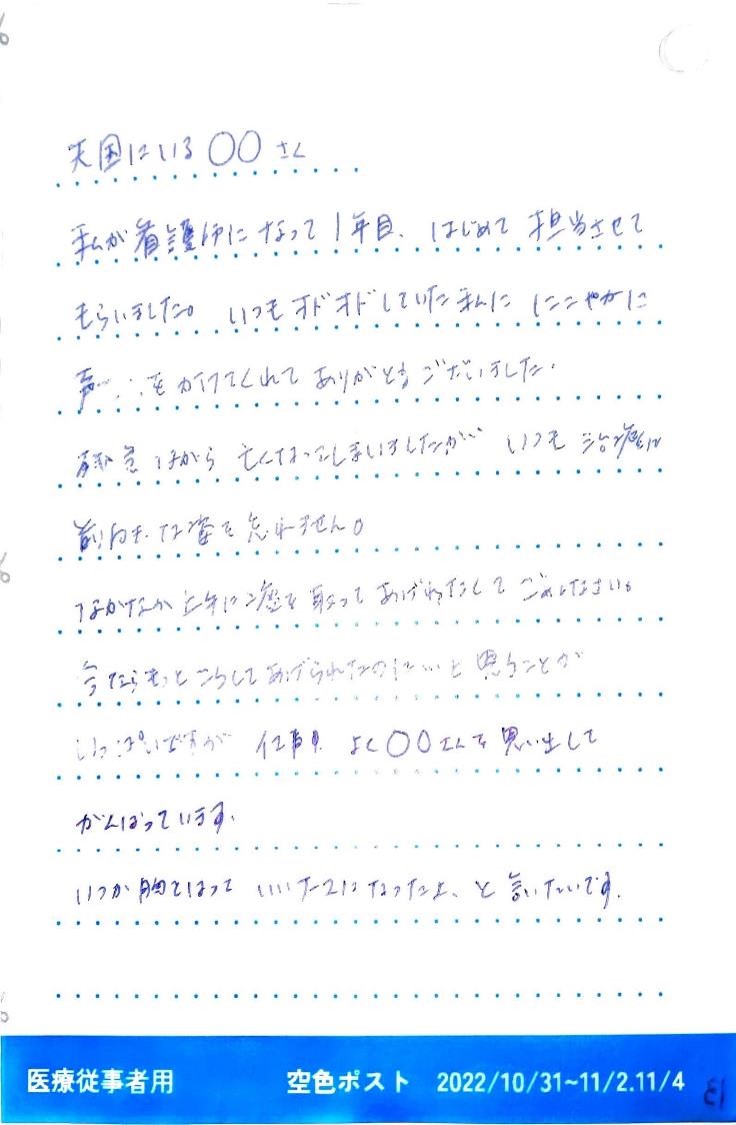 天国にいる〇〇さん
私が看護師になって1年目、はじめて担当させて
もらいました。いつもオドオドしていた私に にこやかに
声をかけてくれてありがとうございました。
残念ながら亡くなってしまいましたが いつも治療に
前向きな姿を忘れません。
なかなか上手に痰を取ってあげれなくてごめんなさい。
今ならもっとこうしてあげられたのに…と思うことが
いっぱいですが 仕事中 よく〇〇さんを思い出して
がんばっています。
いつか胸をはって いいナースになったよ、と言いたいです。
医療従事者用 空色ポスト 2022/10/31~11/2.11/4